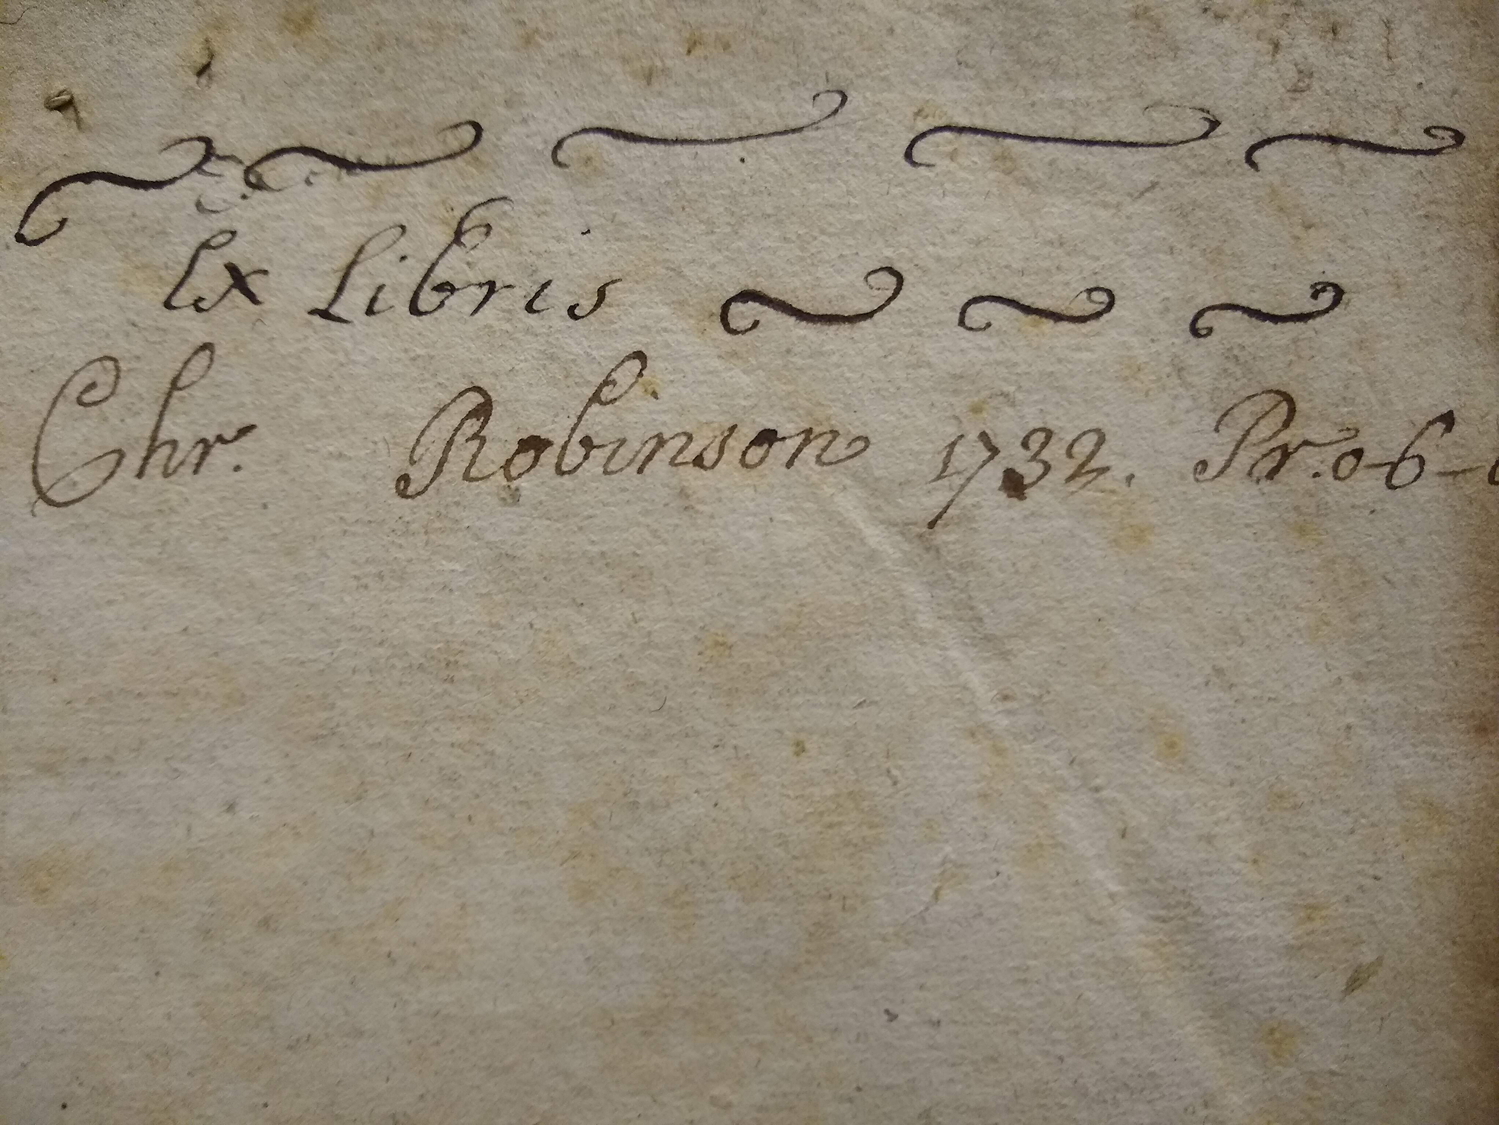 Ex Libris
Chr. Robinson 1732. Pr. 0-6-